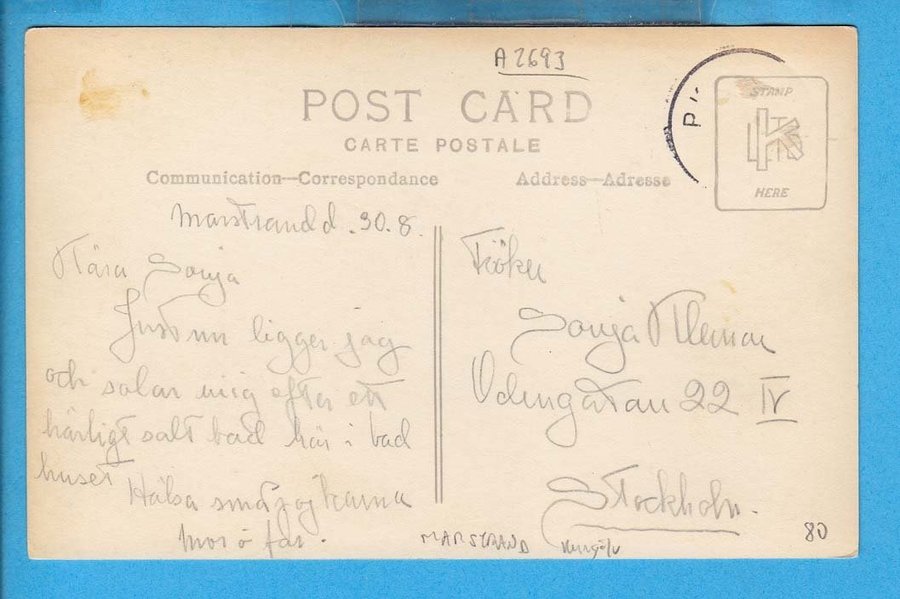 A 2693
POST CARD
CARTE POSTALE
Communication—Correspondance
Address—Adresse
STAMP
HERE
Marstrand d. 30.8.
Kära Sonja
Just nu ligger jag
och solar mig efter ett
härligt salt bad här i bad
huset
Hälsa småpojkarna
mor o far.
Fröken
Sonja
Odengatan 22 IV
Stockholm.
MARSTRAND
80